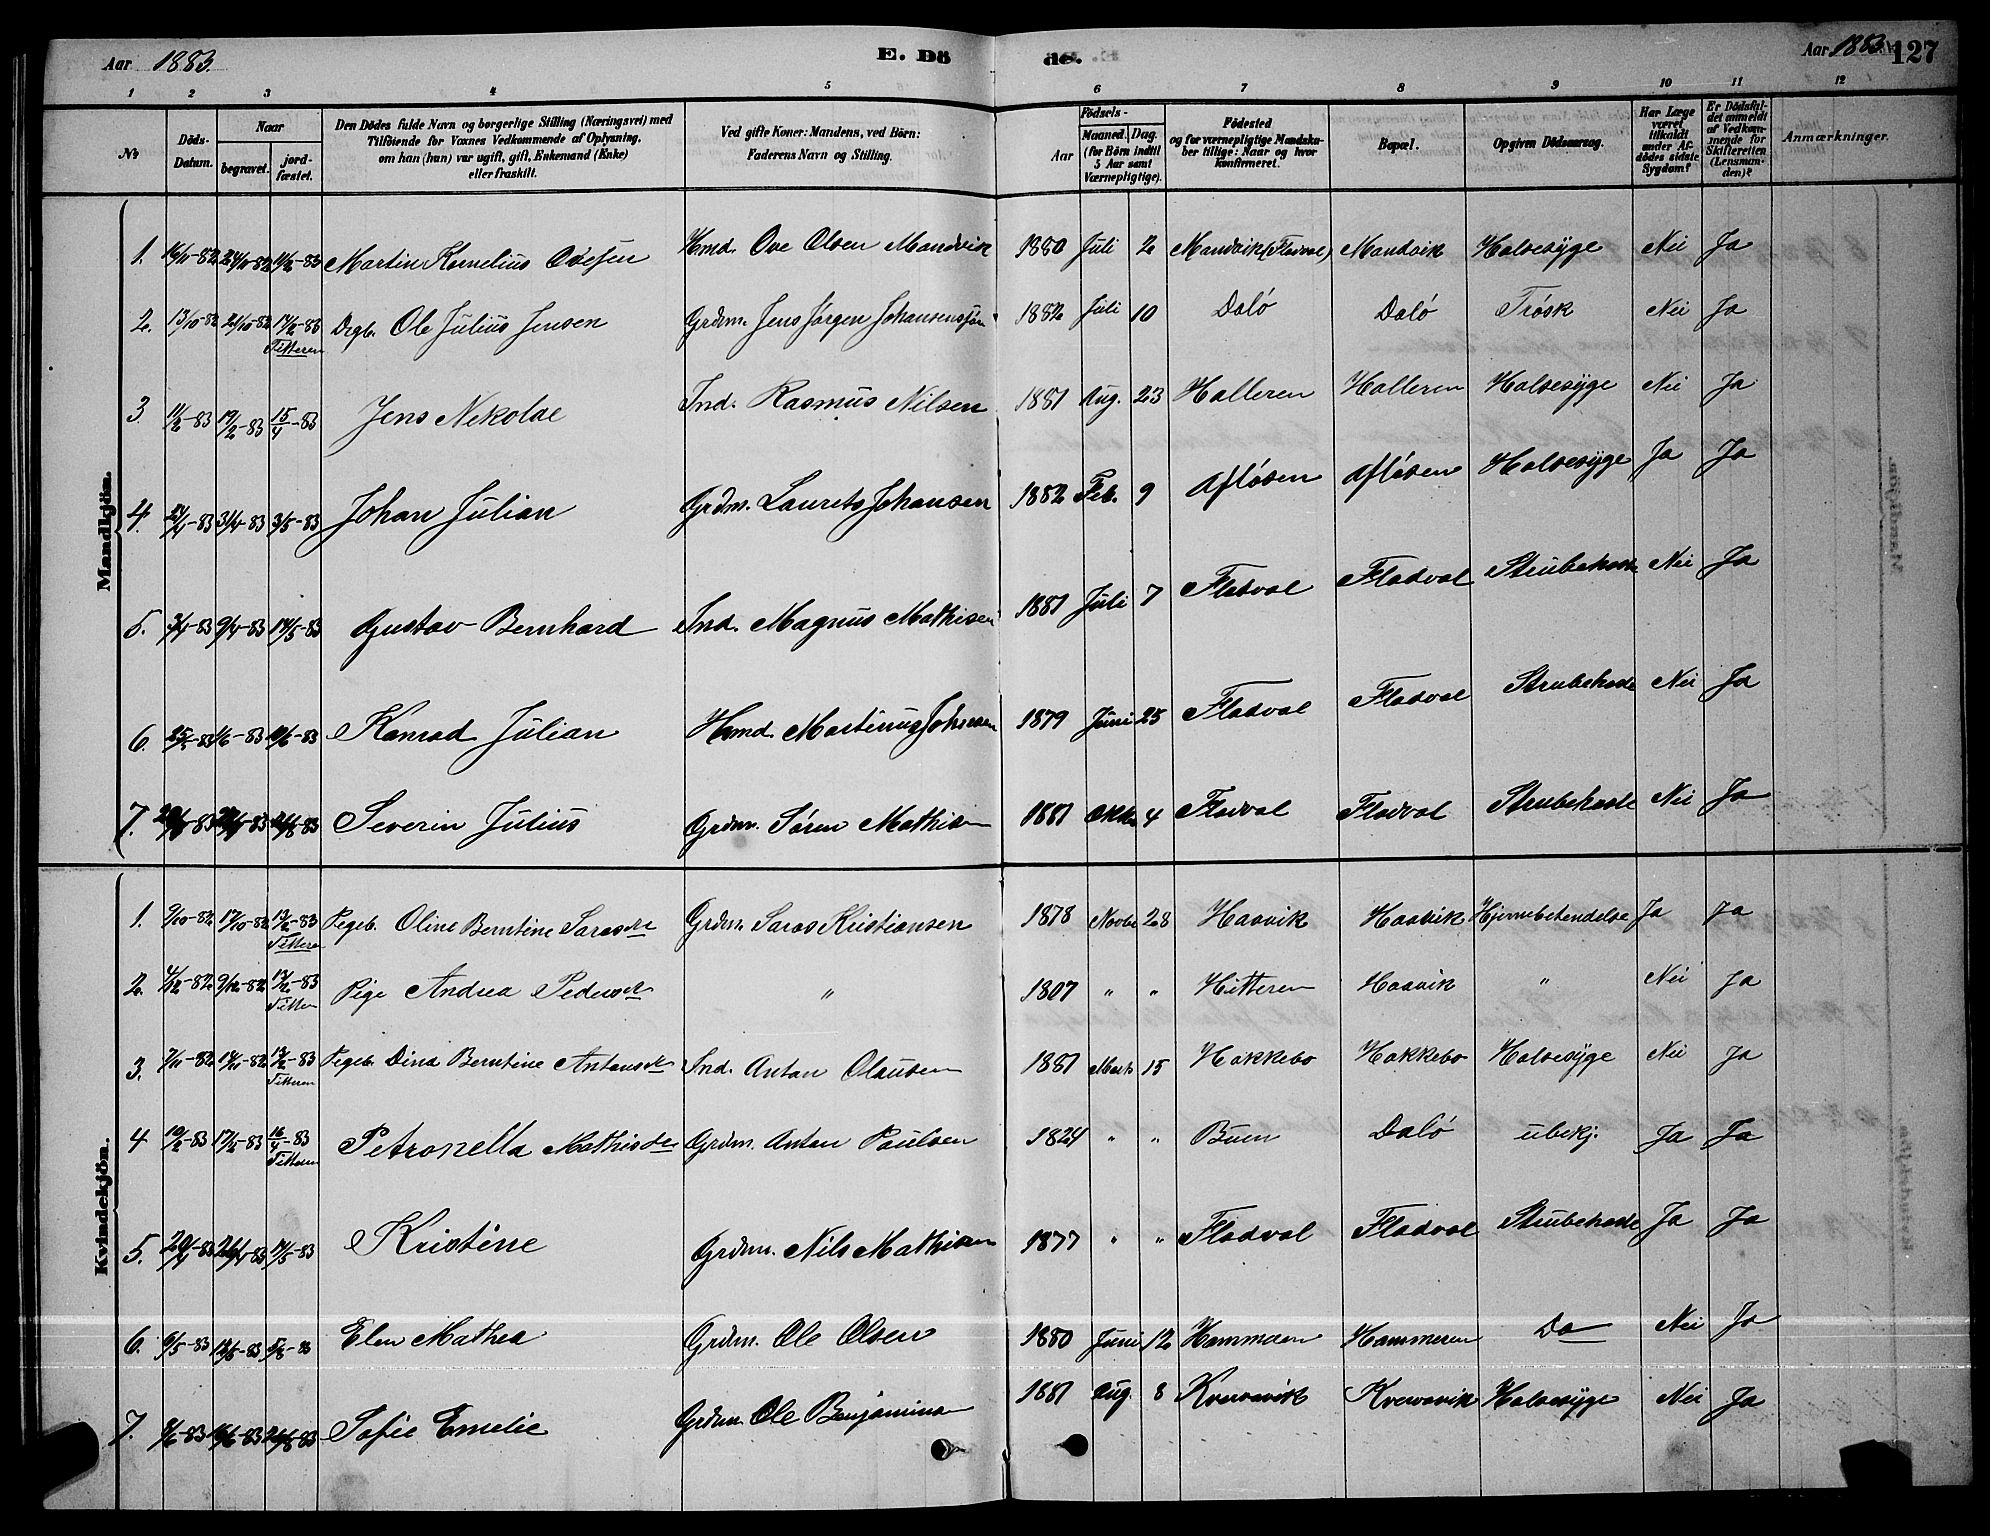 Aar 1883. E. Dö de. Aar 1883. 127
1 2 3 4 5 6 7 8 9 10 11 12
No
Döds-Datum.
Naar
begravet.
jord-fæstet.
Den Dödes fulde Navn og borgerlige Stilling (Næringsvei) med
Tilföiende for Voxnes Vedkommende af Oplysning,
om han (hun) var ugift, gift, Enkemand (Enke)
eller fraskilt.
Ved gifte Koner: Mandens, ved Börn:
Faderens Navn og Stilling.
Födsels-
Aar
Maaned. Dag.
(for Börn indtil
5 Aar samt
Værnepligtige).
Födested
og for værnepligtige Mandska-
ber tillige: Naar og hvor
konfirmeret.
Bopæl.
Opgiven Dödsaarsag.
Har Læge
været
tilkaldt
under Af-
dödes sidste
Sygdom?
Er Dödsfal-
det anmeldt
af Vedkom-
mende for
Skifteretten
(Lensman-
den)?
Anmærkninger.
Mandkjön.
1. 16/11-82 24/11-82 Martin Kornelius Ovesen Hmd. Ove Olsen Mandvik 1880 Juli 2 Mandvik (Fladval) Mandvik Halsesyge Nei Ja
2. 13/10-82 21/10-82 Drgb. Ole Julius Jensen Grdm. Jens Jörgen 1882 Juli 10 Dalö Dalö Trösk Nei Ja
3 11/2-83 19/2-83 15/4-83 Jens Nekolae Ind. Rasmus Nilsen 1881 Aug. 23 Halleren Halleren Halsesyge Nei Ja
4. 3/5-83 Johan Julian Grdm. Laurets Johansen 1882 Feb. 9 Aflösen Aflösen Halsesyge Ja Ja
5. 9/4-83 14/5-83 Gustav Bernhard Ind. Magnus Mathisen 1881 Juli 7 Fladval Fladval Strubehoste Nei Ja
6. Konrad Julian Hmd. Martinus Johnsen 1879 Juni 25 Fladval Fladval Strubehoste Nei Ja
7. Severin Julius Grdm. Sören Mathisen 1881 Oktb 4 Fladval Fladval Strubehoste Nei Ja
Kvindekjön.
1. 9/10-82 17/10-82 Pigeb. Oline Berntine Sarasdtr Grdm. Saras Kristiansen 1878 Novbr 28 Haavik Haavik Hjernebetendelse Ja Ja
2. 4/12-82 9/12-82 Pige Andrea Pedersdtr " 1807 " " Hitteren Haavik " Nei Ja
3. 7/11-82 14/11-82 Pigeb. Dina Berntine Antonsdtr Ind. Anton Olausen 1881 Marts 15 Hakkebo Hakkebo Halsesyge Nei Ja
4 10/2-83 17/2-83 16/4-83 Petronella Mathisdtr Grdm. Anton Paulsen 1824 " " Buen Dalö ubekj. Ja Ja
5. 20/4-83 Kristine Grdm. Nils Mathisen 1877 " " Fladval Fladval Strubehoste Ja Ja
6. 6/5-83 12/5-83 Elen Mathea Grdm. Ole Olsen 1880 Juni 12 Hammeren Hammeren Do Nei Ja
7. Sofie Emelie Grdm. Ole Benjaminsen 1881 Aug. 8 Kvervavik Kvervavik Halsesyge Nei Ja